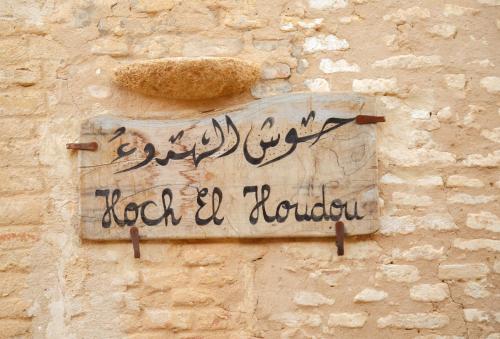 حوش الهدوء
Hoch El Houdou